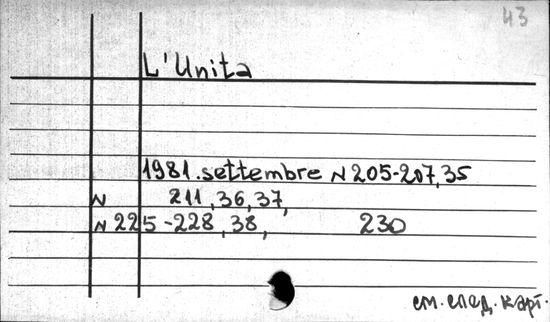 43
L'Unita
1981. settembre N 205-207, 35
N 211, 36, 37,
N 225-228, 38, 230
см. след. карт.